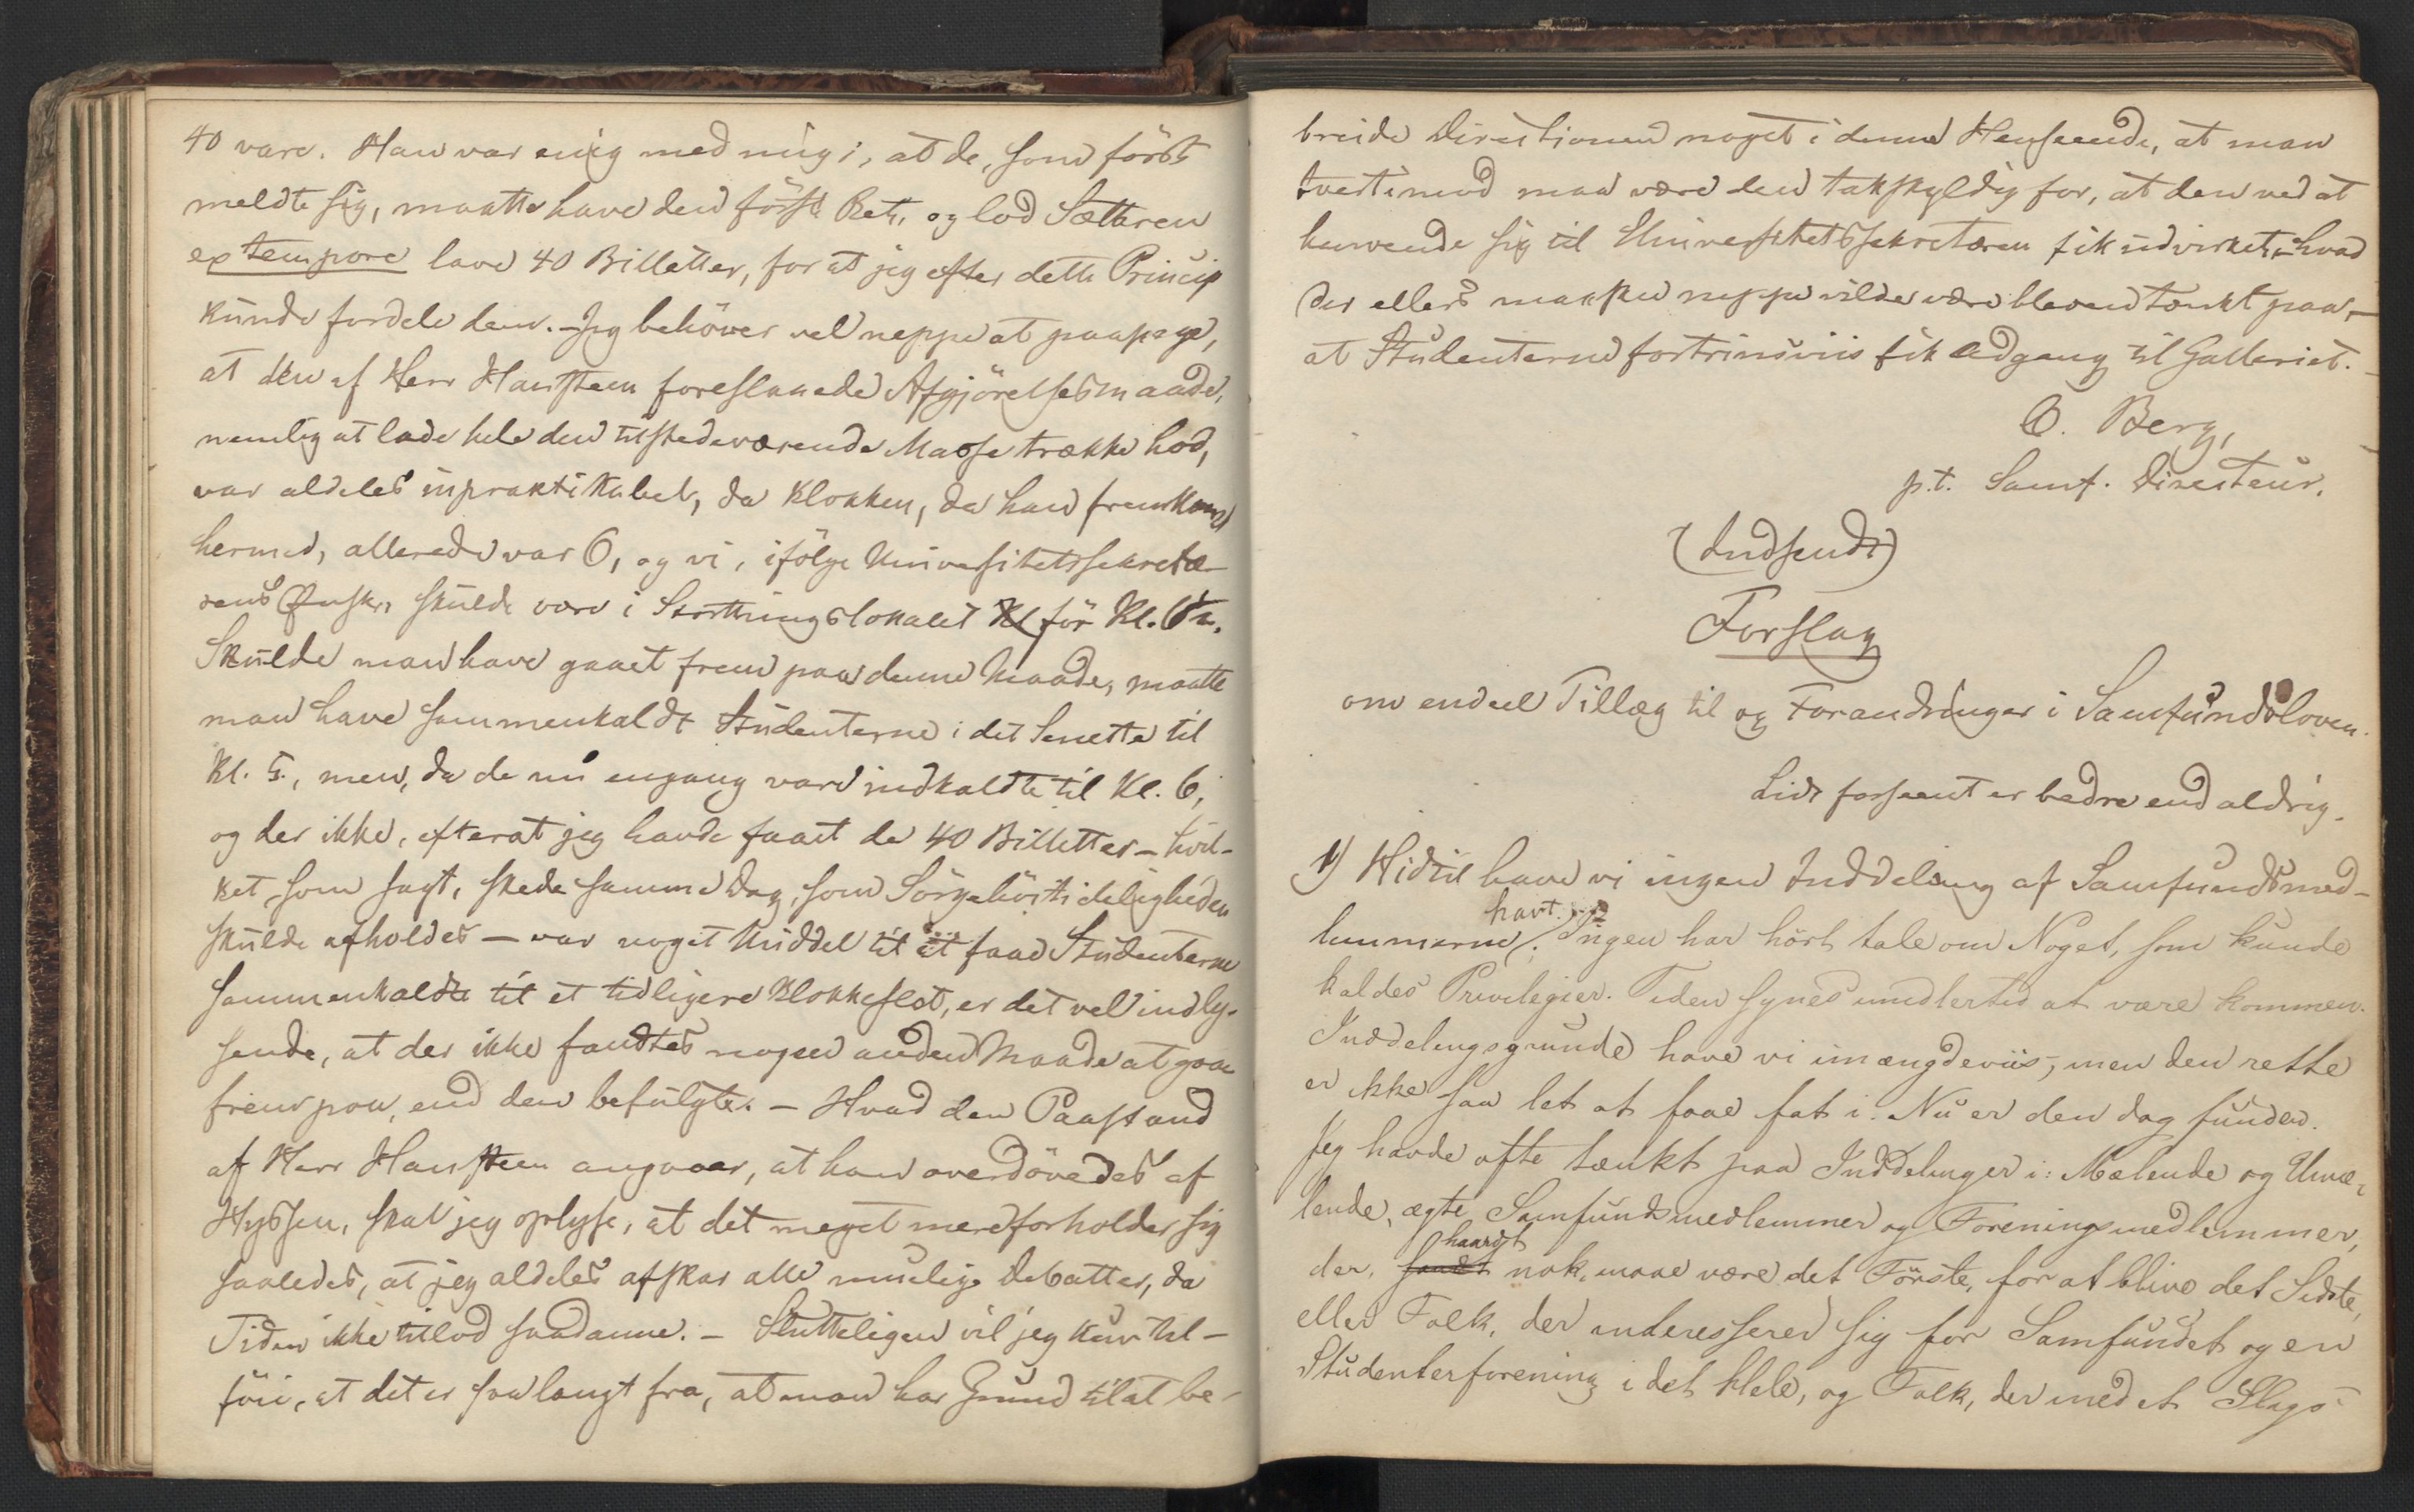 40 vare. Han var enig med mig i, at de, som först
meldte sig, maatte have den förste Ret, og lod Sætteren
ex tempore lave 40 Billetter, for at jeg efter dette Princip
kunde fordele dem. – Jeg behöver vel neppe at paapege,
at den af Herr Hansteen foreslaaede Afgjörelsesmaade,
nemlig at lade hele den tilstedeværende Masse trække Lod,
var aldeles inpraktikabel, da Klokken, da han fremkom
hermed, allerede var 6, og vi, ifölge Universitetssekretæ-
rens Ønske, skulde være i Storthingslokalet Kl för Kl. 6½.
Skulde man have gaaet frem paa denne Maade, maatte
man have sammenkaldt Studenterne i det Seneste til
Kl. 5., men, da de nu engang vare indkaldte til Kl. 6,
og der ikke, efterat jeg havde faaet de 40 Billetter – hvil-
ket, som sagt, skede samme Dag, som Sörgehöitideligheden
skulde afholdes – var noget Middel til at faae Studenterne
sammenkaldte til et tidligere Klokkeslet, er det vel indly-
sende, at der ikke fandtes nogen anden Maade at gaae
frem paa, end den befulgte. – Hvad den Paastand
af Herr Hansteen angaaer, at han overdövedes af
Hyssen, skal jeg oplyse, at det meget mere forholder sig
saaledes, at jeg aldeles afskar alle mulige Debatter, da
Tiden ikke tillod saadanne. – Slutteligen vil jeg kun til-
föie, at det er saa langt fra, at man har Grund til at be-
breide Directionen noget i denne Henseende, at man
tvertimod maa være den takskyldig for, at den ved at
henvende sig til Universitetssekretæren fik udvirket, – hvad
der ellers maaskee neppe vilde være bleven tænkt paa, –
at Studenterne fortrinsviis fik Adgang til Galleriet.
O. Berg,
p.t. Samf. Directeur.
(Indsendt)
Forslag
om endeel Tillæg til og Forandringer i Samfundsloven.
Lidt forseent er bedre end aldrig.
1) Hidtil have vi ingen Inddeling af Samfundsmed-
lemmerne havt. Ingen har hört tale om Noget, som kunde
kaldes Privilegier. Tiden synes imidlertid at være kommen.
Inddelingsgrunde have vi i mængdeviis, men den rette
er ikke saa let at faae fat i. Nu er den dog funden.
Jeg havde ofte tænkt paa Inddelinger i: Mælende og Umæ-
lende, ægte Samfundsmedlemmer og Foreningsmedlemmer,
der, haardt nok, maae være det Förste, for at blive det Sidste,
eller Folk, der interesserer sig for Samfundet og en
Studenterforening i det Hele, og Folk, der med et Slags